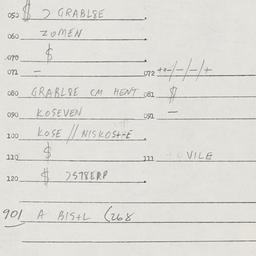 050 $ > GRABLSE
060 ZOMEN
070 $
071 - 072 ++-/-/-/+
080 GRABLSE CM HENT 081 $
090 KOSEVEN 091 -
100 KOSE // NISKOS+-E
110 $ 111 VILE
120 $ >578ERP
901 A BIS+L (268